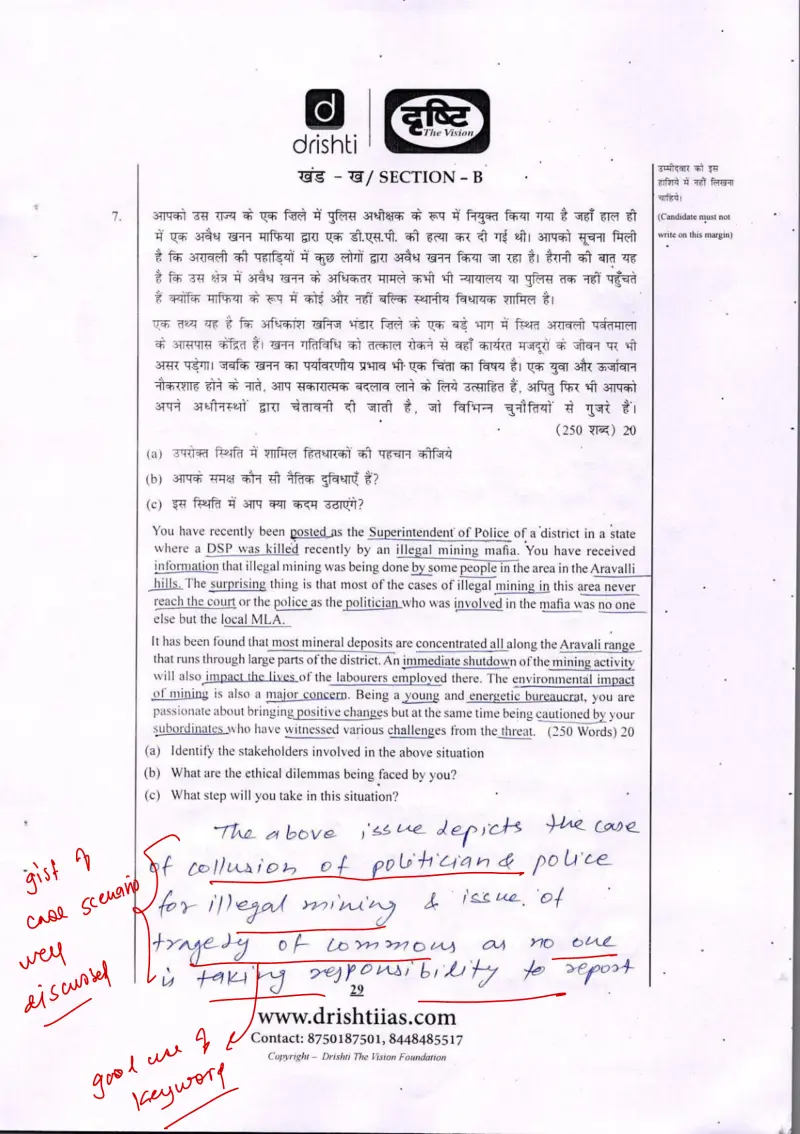 d
drishti
दृष्टि
The Vision
खंड - ख/ SECTION - B
उम्मीदवार को इस
हाशिये में नहीं लिखना
चाहिये।
(Candidate must not
write on this margin)
7. आपको उस राज्य के एक ज़िले में पुलिस अधीक्षक के रूप में नियुक्त किया गया है जहाँ हाल ही
में एक अवैध खनन माफिया द्वारा एक डी.एस.पी. की हत्या कर दी गई थी। आपको सूचना मिली
है कि अरावली की पहाड़ियों में कुछ लोगों द्वारा अवैध खनन किया जा रहा है। हैरानी की बात यह
है कि उस क्षेत्र में अवैध खनन के अधिकतर मामले कभी भी न्यायालय या पुलिस तक नहीं पहुँचते
हैं क्योंकि माफिया के रूप में कोई और नहीं बल्कि स्थानीय विधायक शामिल है।
एक तथ्य यह है कि अधिकांश खनिज भंडार ज़िले के एक बड़े भाग में स्थित अरावली पर्वतमाला
के आसपास केंद्रित हैं। खनन गतिविधि को तत्काल रोकने से वहाँ कार्यरत मजदूरों के जीवन पर भी
असर पड़ेगा। जबकि खनन का पर्यावरणीय प्रभाव भी एक चिंता का विषय है। एक युवा और ऊर्जावान
नौकरशाह होने के नाते, आप सकारात्मक बदलाव लाने के लिये उत्साहित हैं, अपितु फिर भी आपको
अपने अधीनस्थों द्वारा चेतावनी दी जाती है, जो विभिन्न चुनौतियों से गुजरे हैं।
(250 शब्द) 20
(a) उपरोक्त स्थिति में शामिल हितधारकों की पहचान कीजिये
(b) आपके समक्ष कौन सी नैतिक दुविधाएँ हैं?
(c) इस स्थिति में आप क्या कदम उठाएंगे?
You have recently been posted as the Superintendent of Police of a district in a state
where a DSP was killed recently by an illegal mining mafia. You have received
information that illegal mining was being done by some people in the area in the Aravalli
hills. The surprising thing is that most of the cases of illegal mining in this area never
reach the court or the police as the politician who was involved in the mafia was no one
else but the local MLA.
It has been found that most mineral deposits are concentrated all along the Aravali range
that runs through large parts of the district. An immediate shutdown of the mining activity
will also impact the lives of the labourers employed there. The environmental impact
of mining is also a major concern. Being a young and energetic bureaucrat, you are
passionate about bringing positive changes but at the same time being cautioned by your
subordinates who have witnessed various challenges from the threat. (250 Words) 20
(a) Identify the stakeholders involved in the above situation
(b) What are the ethical dilemmas being faced by you?
(c) What step will you take in this situation?
The above issue depicts the case
of collusion of politician & police
for illegal mining & issue of
tragedy of commons as no one
is taking responsibility to report
gist of
case scenario
well
discussed
29
www.drishtiias.com
Contact: 8750187501, 8448485517
Copyright – Drishti The Vision Foundation
good use of
keyword